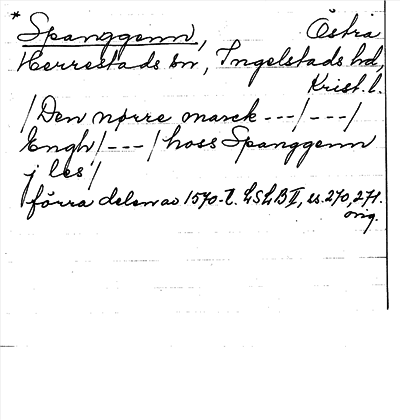 * Spanggenn, Östra
Herrestads sn, Ingelstads hd,
Krist. l.
/Den nørre marck ---/---/
Engh/---/hoss Spanggenn
j les/
förra delen av 1570-t. LSLB II, ss. 270, 271.
orig.